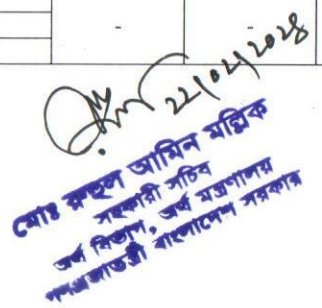 -
-
২২/০২/২০২৪
মোঃ রুহুল আমিন মল্লিক
সহকারী সচিব
অর্থ বিভাগ, অর্থ মন্ত্রণালয়
গণপ্রজাতন্ত্রী বাংলাদেশ সরকার